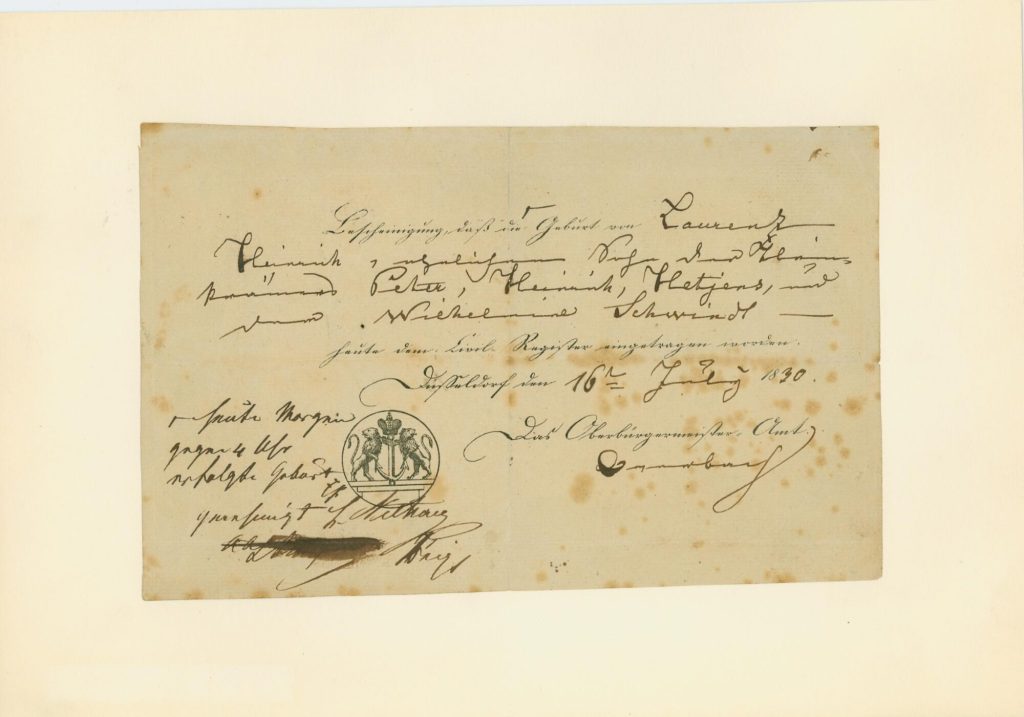 Bescheinigung, daß die Geburt von Laurenz
Heinrich, ehelichem Sohn des Klein-
krämers Peter, Heinrich, Hetjens, und
der Wilhelmine Schwindt
heute dem Civil-Register eingetragen worden.
Düsseldorf den 16t July 1830.
Das Oberbürgermeister-Amt:
heute Morgen
gegen 4 Uhr
erfolgte Geburt